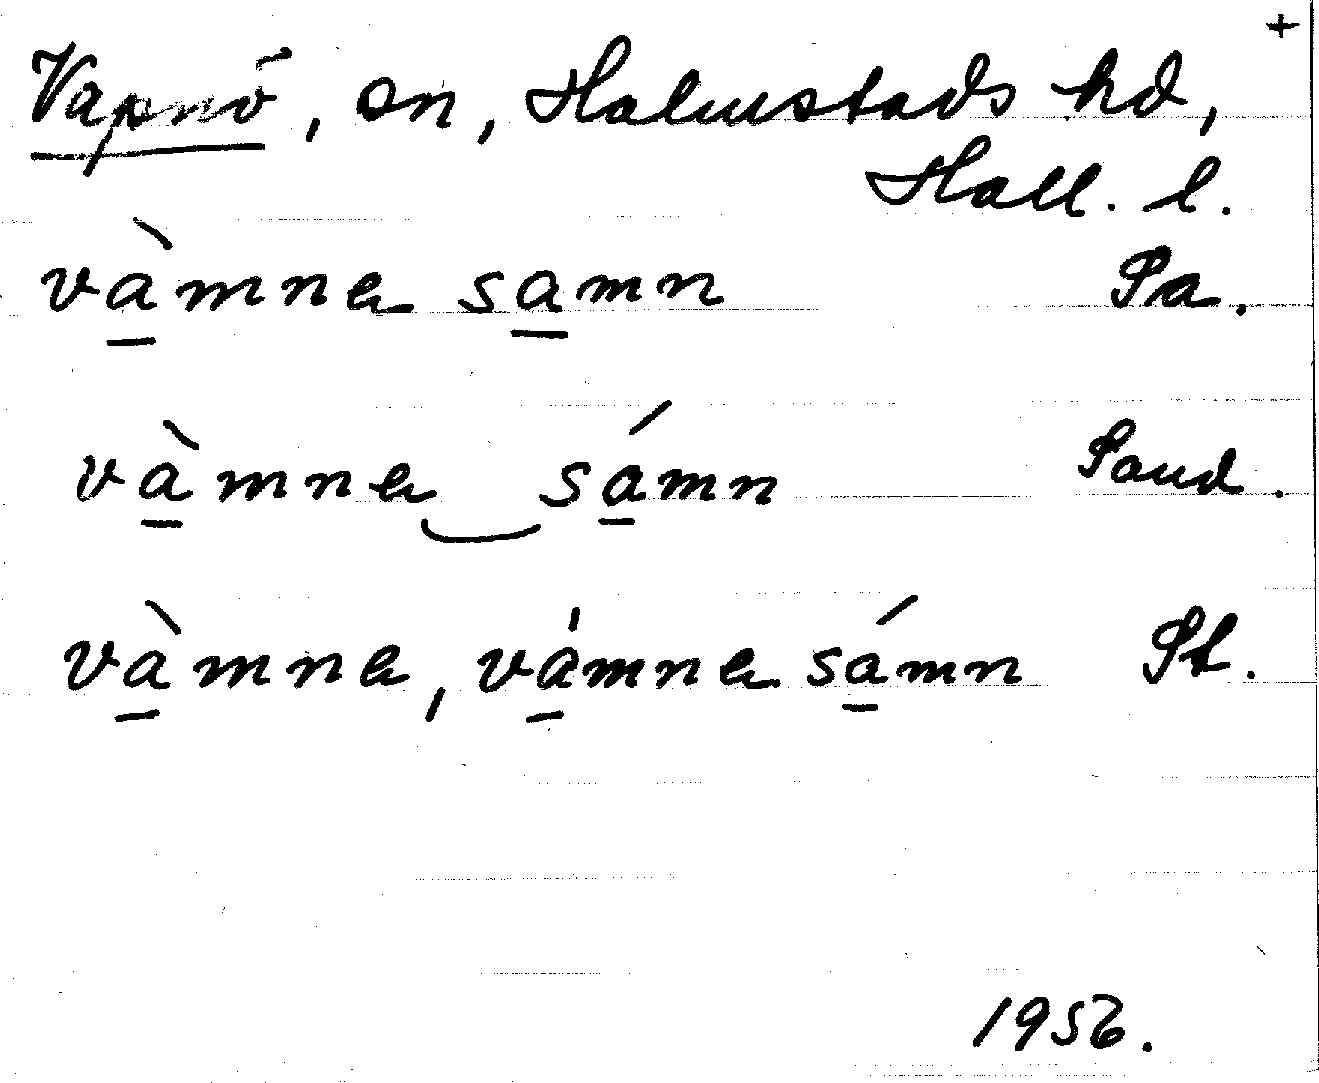 +
Vapnö, sn, Halmstads hd,
Hall. l.
và̲mnea sa̲mn Pa.
và̲mnea‿sá̲mn Sand.
và̲mnea, vá̲mnea sá̲mn St.
1956.